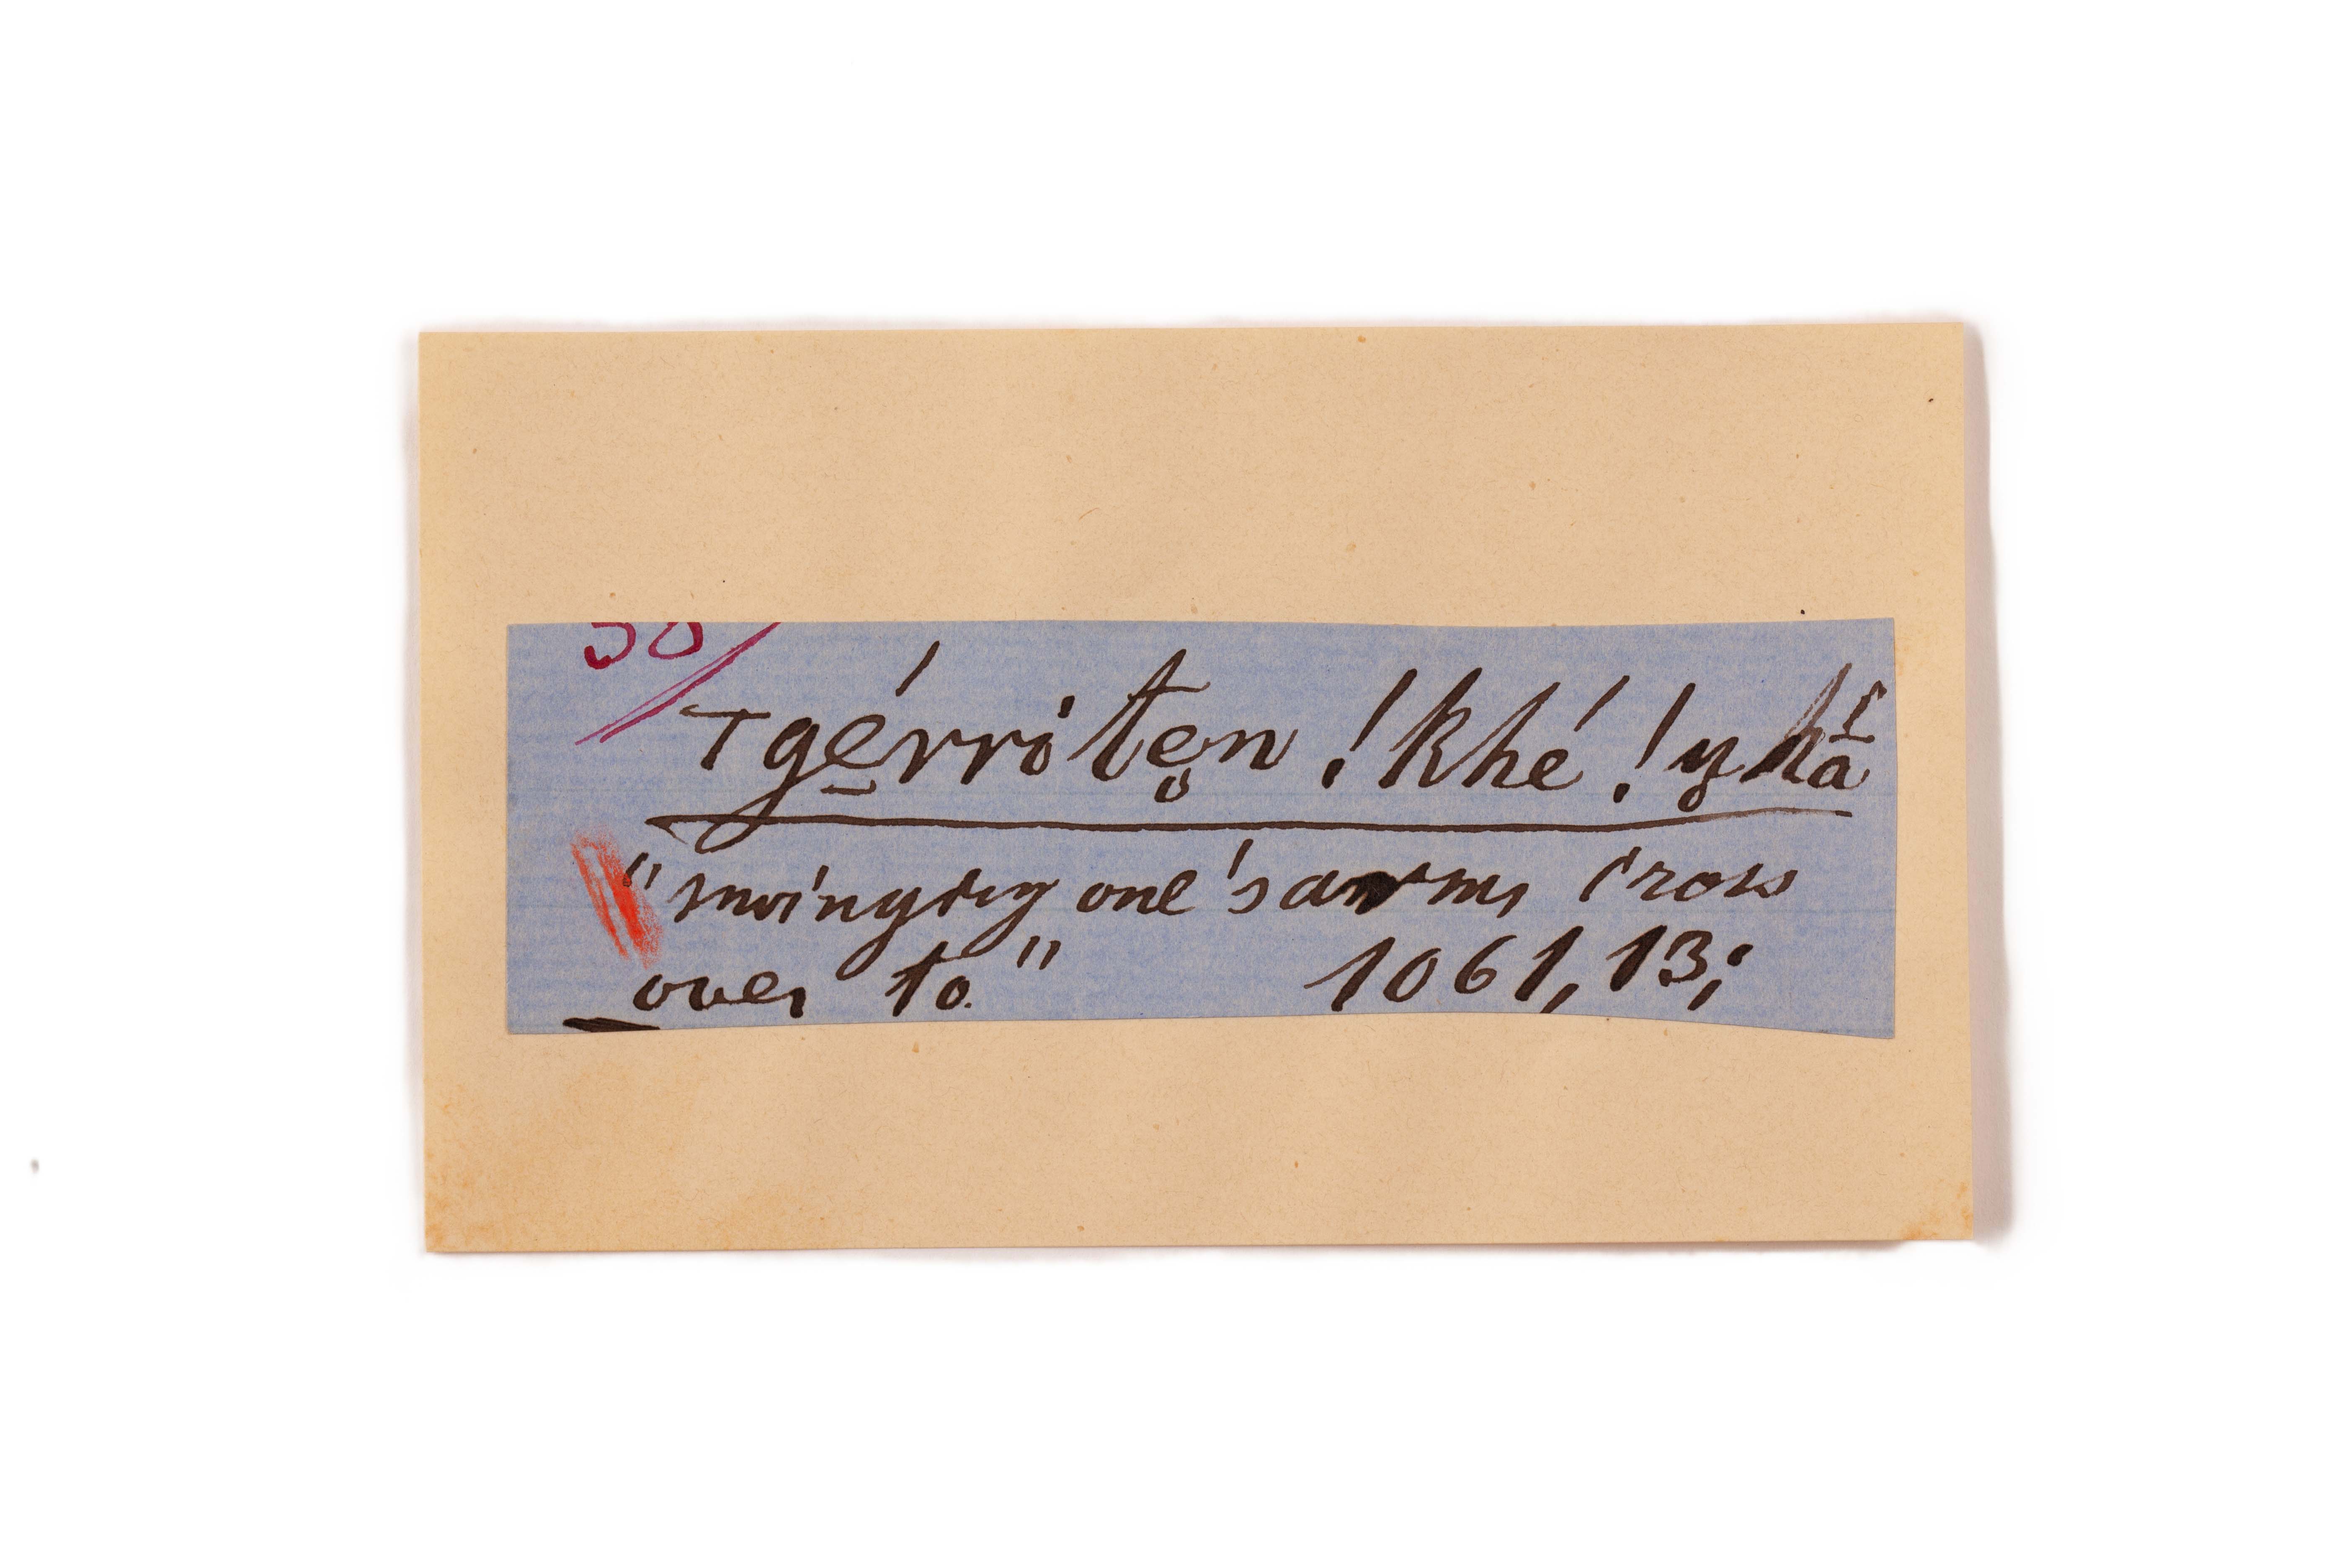 Tgé̱rritę̥n !khé !yhā́
"swinging one's arms cross
over to." 1061, 13;